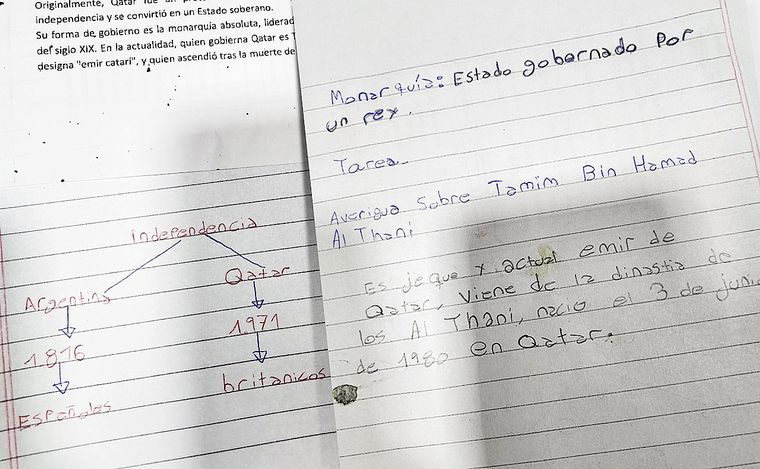 Originalmente, Qatar fue un
independencia y se convirtió en un Estado soberano.
Su forma de gobierno es la monarquía absoluta,
del siglo XIX. En la actualidad, quien gobierna Qatar es
designa "emir catarí", y quien ascendió tras la muerte de
Monarquía: Estado gobernado Por
un rey.
Tarea
Averigua Sobre Tamim Bin Hamad
Al Thani
Es jeque y actual emir de
Qatar, viene de la dinastia de
los Al Thani, nacio el 3 de
de 1980 en Qatar.
independencia
Argentina
Qatar
1.816
1971
Españoles
britanicos